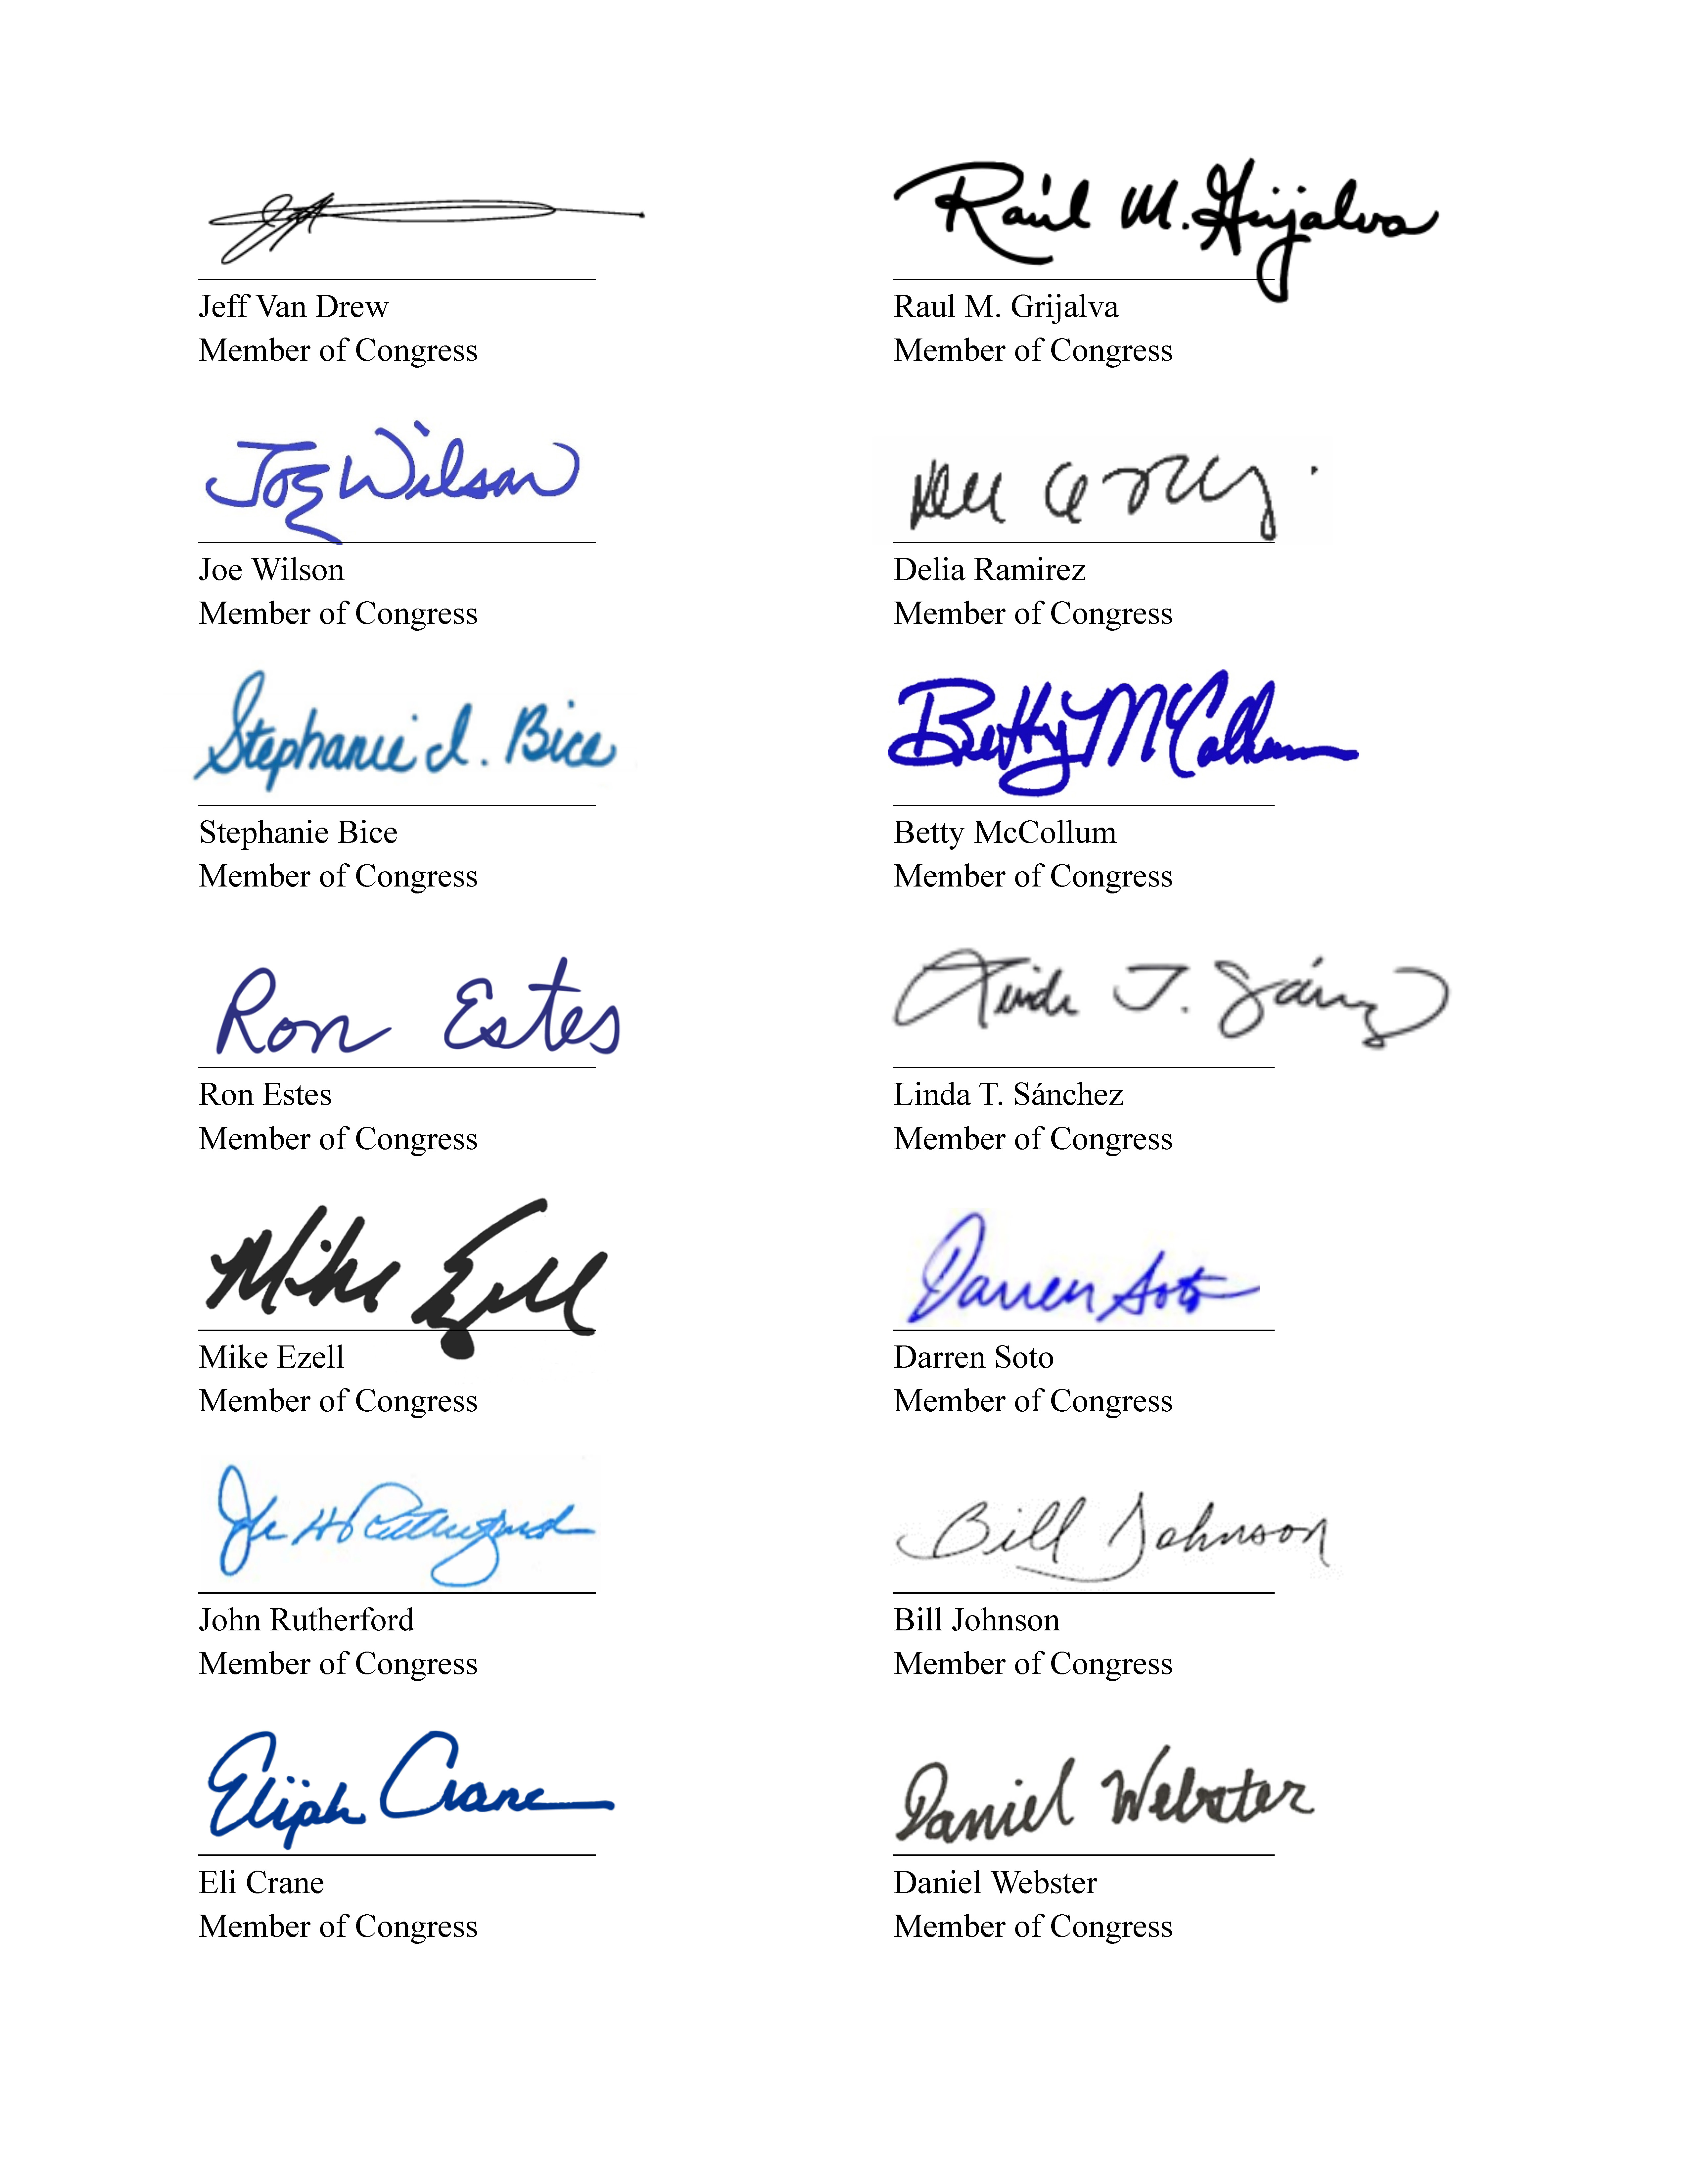 Jeff Van Drew
Member of Congress
Raúl M. Grijalva
Raul M. Grijalva
Member of Congress
Joe Wilson
Joe Wilson
Member of Congress
Delia Ramirez
Member of Congress
Stephanie I. Bice
Stephanie Bice
Member of Congress
Betty McCollum
Betty McCollum
Member of Congress
Ron Estes
Ron Estes
Member of Congress
Linda T. Sánchez
Linda T. Sánchez
Member of Congress
Mike Ezell
Mike Ezell
Member of Congress
Darren Soto
Darren Soto
Member of Congress
John H Rutherford
John Rutherford
Member of Congress
Bill Johnson
Bill Johnson
Member of Congress
Elijah Crane
Eli Crane
Member of Congress
Daniel Webster
Daniel Webster
Member of Congress